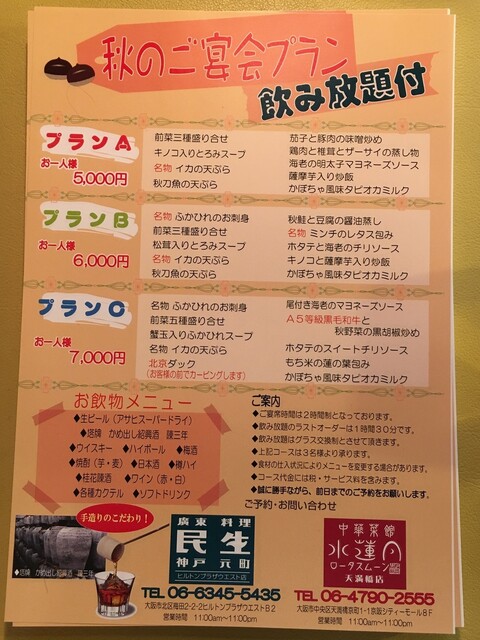 秋のご宴会プラン
飲み放題付
プランA
お一人様
5,000円
前菜三種盛り合せ
キノコ入りとろみスープ
名物 イカの天ぷら
秋刀魚の天ぷら
茄子と豚肉の味噌炒め
鶏肉と椎茸とザーサイの蒸し物
海老の明太子マヨネーズソース
薩摩芋入り炒飯
かぼちゃ風味タピオカミルク
プランB
お一人様
6,000円
名物 ふかひれのお刺身
前菜三種盛り合せ
松茸入りとろみスープ
名物 イカの天ぷら
秋刀魚の天ぷら
秋鮭と豆腐の醤油蒸し
名物 ミンチのレタス包み
ホタテと海老のチリソース
キノコと薩摩芋入り炒飯
かぼちゃ風味タピオカミルク
プランC
お一人様
7,000円
名物 ふかひれのお刺身
前菜五種盛り合せ
蟹玉入りふかひれスープ
名物 イカの天ぷら
北京ダック
(お客様の前でカービングします)
尾付き海老のマヨネーズソース
A5等級黒毛和牛と
秋野菜の黒胡椒炒め
ホタテのスイートチリソース
もち米の蓮の葉包み
かぼちゃ風味タピオカミルク
お飲物メニュー
◆生ビール(アサヒスーパードライ)
◆塔牌 かめ出し紹興酒 陳三年
◆ウイスキー ◆ハイボール ◆梅酒
◆焼酎(芋・麦) ◆日本酒 ◆樽ハイ
◆桂花陳酒 ◆ワイン(赤・白)
◆各種カクテル ◆ソフトドリンク
ご案内
◆ご宴席時間は2時間制となっております。
◆飲み放題のラストオーダーは1時間30分です。
◆飲み放題はグラス交換制とさせて頂きます。
◆上記コースは3名様より承ります。
◆食材の仕入状況によりメニューを変更する場合があります。
◆コース代金には税・サービス料を含みます。
◆誠に勝手ながら、前日までのご予約をお願いします。
ご予約・お問い合わせ
手造りのこだわり!
◆塔牌 かめ出し紹興酒 陳三年
廣東料理
民生
神戸元町
ヒルトンプラザウエスト店
TEL 06-6345-5435
大阪市北区梅田2-2-2ヒルトンプラザウエストB2
営業時間 11:00am〜11:00pm
中華菜館
水蓮月
ロータスムーン
天満橋店
TEL 06-4790-2555
大阪市中央区天満橋京町1-1京阪シティーモール8F
営業時間 11:00am〜11:00pm